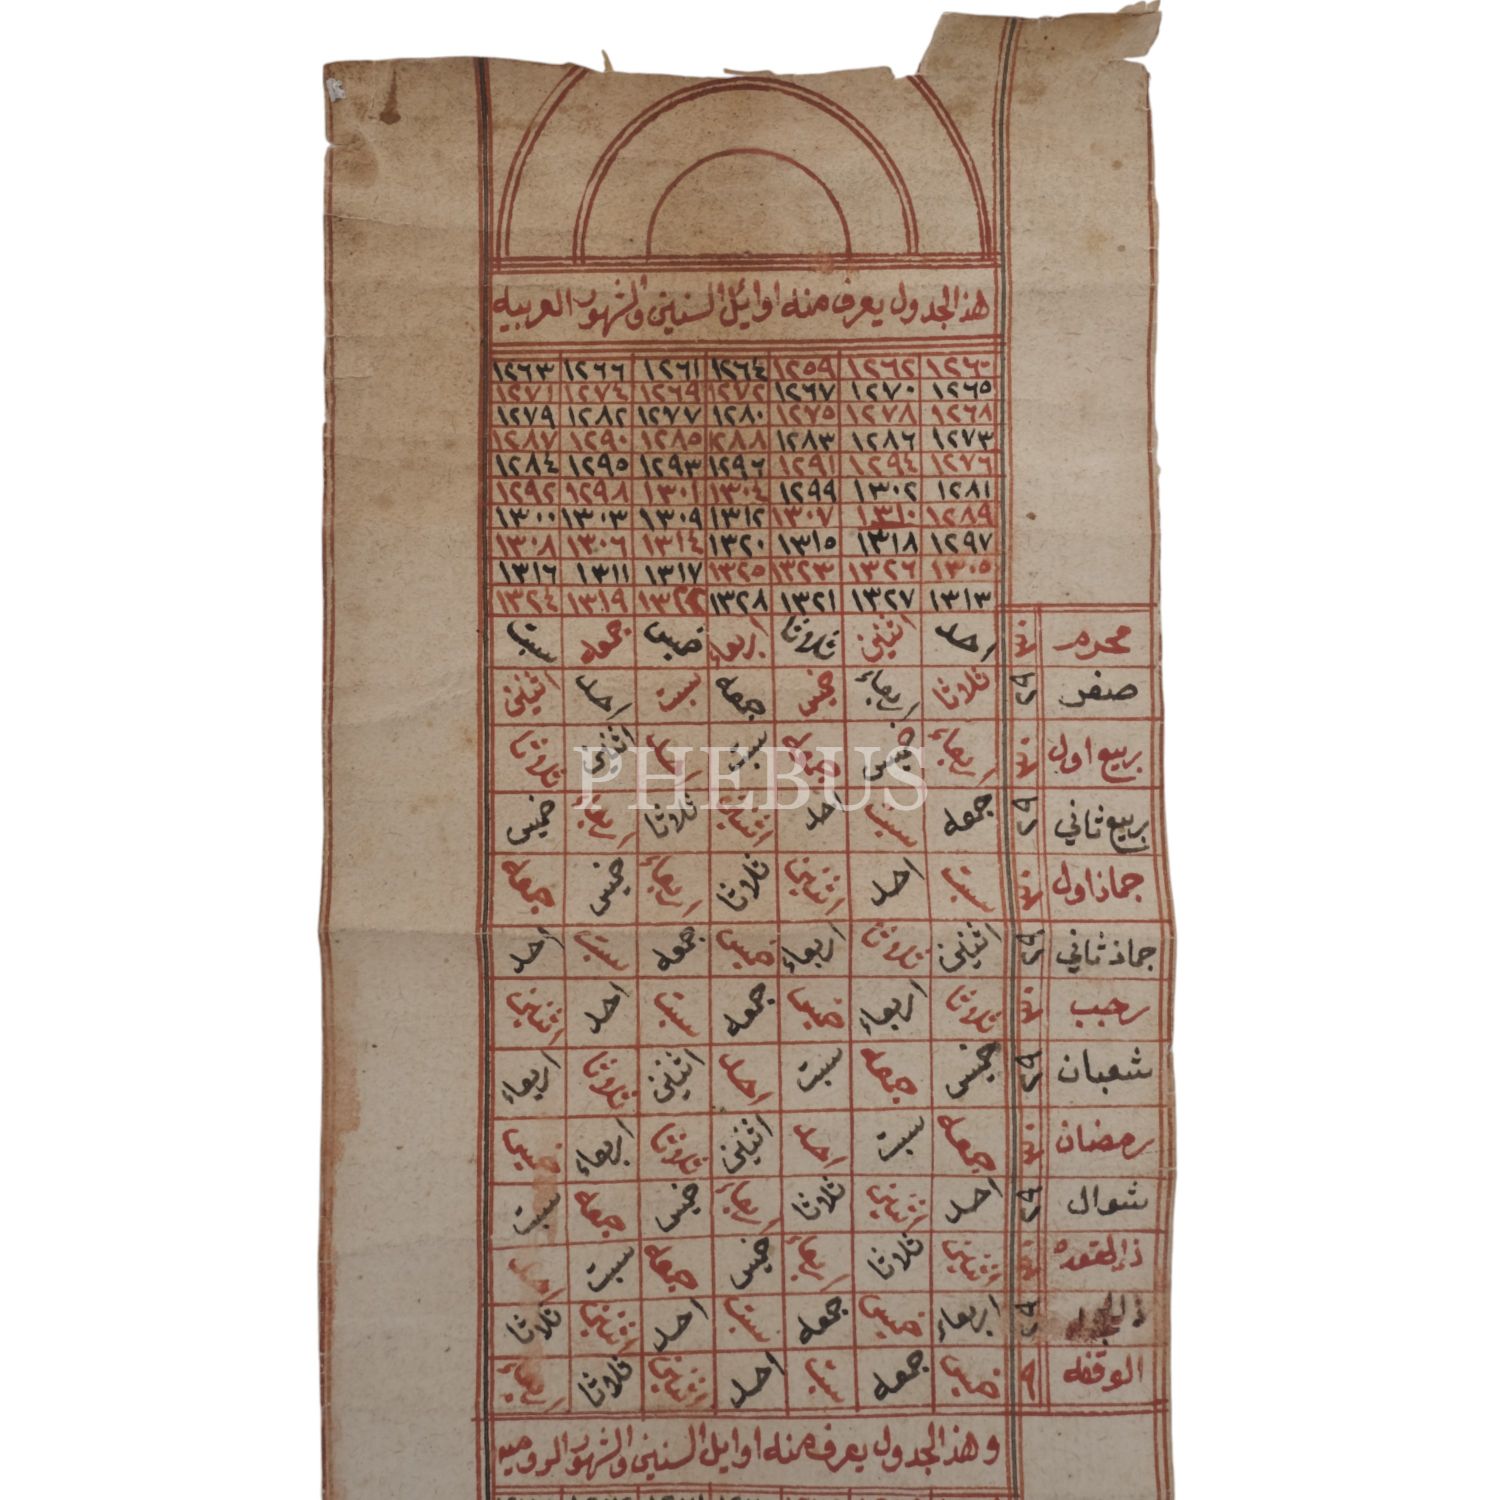 هذا الجدول يعرف منه اوايل السنين والشهور العربيه
١٢٦٠ ١٢٦٢ ١٢٥٩ ١٢٦٤ ١٢٦١ ١٢٦٦ ١٢٦٣
١٢٦٥ ١٢٧٠ ١٢٦٧ ١٢٧٢ ١٢٦٩ ١٢٧٤ ١٢٧١
١٢٦٨ ١٢٧٨ ١٢٧٥ ١٢٨٠ ١٢٧٧ ١٢٨٢ ١٢٧٩
١٢٧٣ ١٢٨٦ ١٢٨٣ ١٢٨٨ ١٢٨٥ ١٢٩٠ ١٢٨٧
١٢٧٦ ١٢٩٤ ١٢٩١ ١٢٩٦ ١٢٩٣ ١٢٩٥ ١٢٨٤
١٢٨١ ١٣٠٢ ١٢٩٩ ١٣٠٤ ١٣٠١ ١٢٩٨ ١٢٩٢
١٢٨٩ ١٣١٠ ١٣٠٧ ١٣١٢ ١٣٠٩ ١٣٠٣ ١٣٠٠
١٢٩٧ ١٣١٨ ١٣١٥ ١٣٢٠ ١٣١٤ ١٣٠٦ ١٣٠٨
١٣٠٥ ١٣٢٦ ١٣٢٣ ١٣٢٥ ١٣١٧ ١٣١١ ١٣١٦
١٣١٣ ١٣٢٧ ١٣٢١ ١٣٢٨ ١٣٢٢ ١٣١٩ ١٣٢٤
محرم احد اثنين ثلاثا اربعاء خميس جمعه سبت
صفر ٢٩ ثلاثا اربعاء خميس جمعه سبت احد اثنين
ربيع اول اربعاء خميس جمعه سبت احد اثنين ثلاثا
ربيع ثاني ٢٩ جمعه سبت احد اثنين ثلاثا اربعاء خميس
جماذ اول سبت احد اثنين ثلاثا اربعاء خميس جمعه
جماذ ثاني ٢٩ اثنين ثلاثا اربعاء خميس جمعه سبت احد
رجب ثلاثا اربعاء خميس جمعه سبت احد اثنين
شعبان ٢٩ خميس جمعه سبت احد اثنين ثلاثا اربعاء
رمضان جمعه سبت احد اثنين ثلاثا اربعاء خميس
شوال ٢٩ احد اثنين ثلاثا اربعاء خميس جمعه سبت
ذالقعده اثنين ثلاثا اربعاء خميس جمعه سبت احد
٢٩ اربعاء خميس جمعه سبت احد اثنين ثلاثا
الوقفه ٩ خميس جمعه سبت احد اثنين ثلاثا اربعاء
وهذا الجدول يعرف منه اوايل السنين والشهور الروميه
PHEBUS